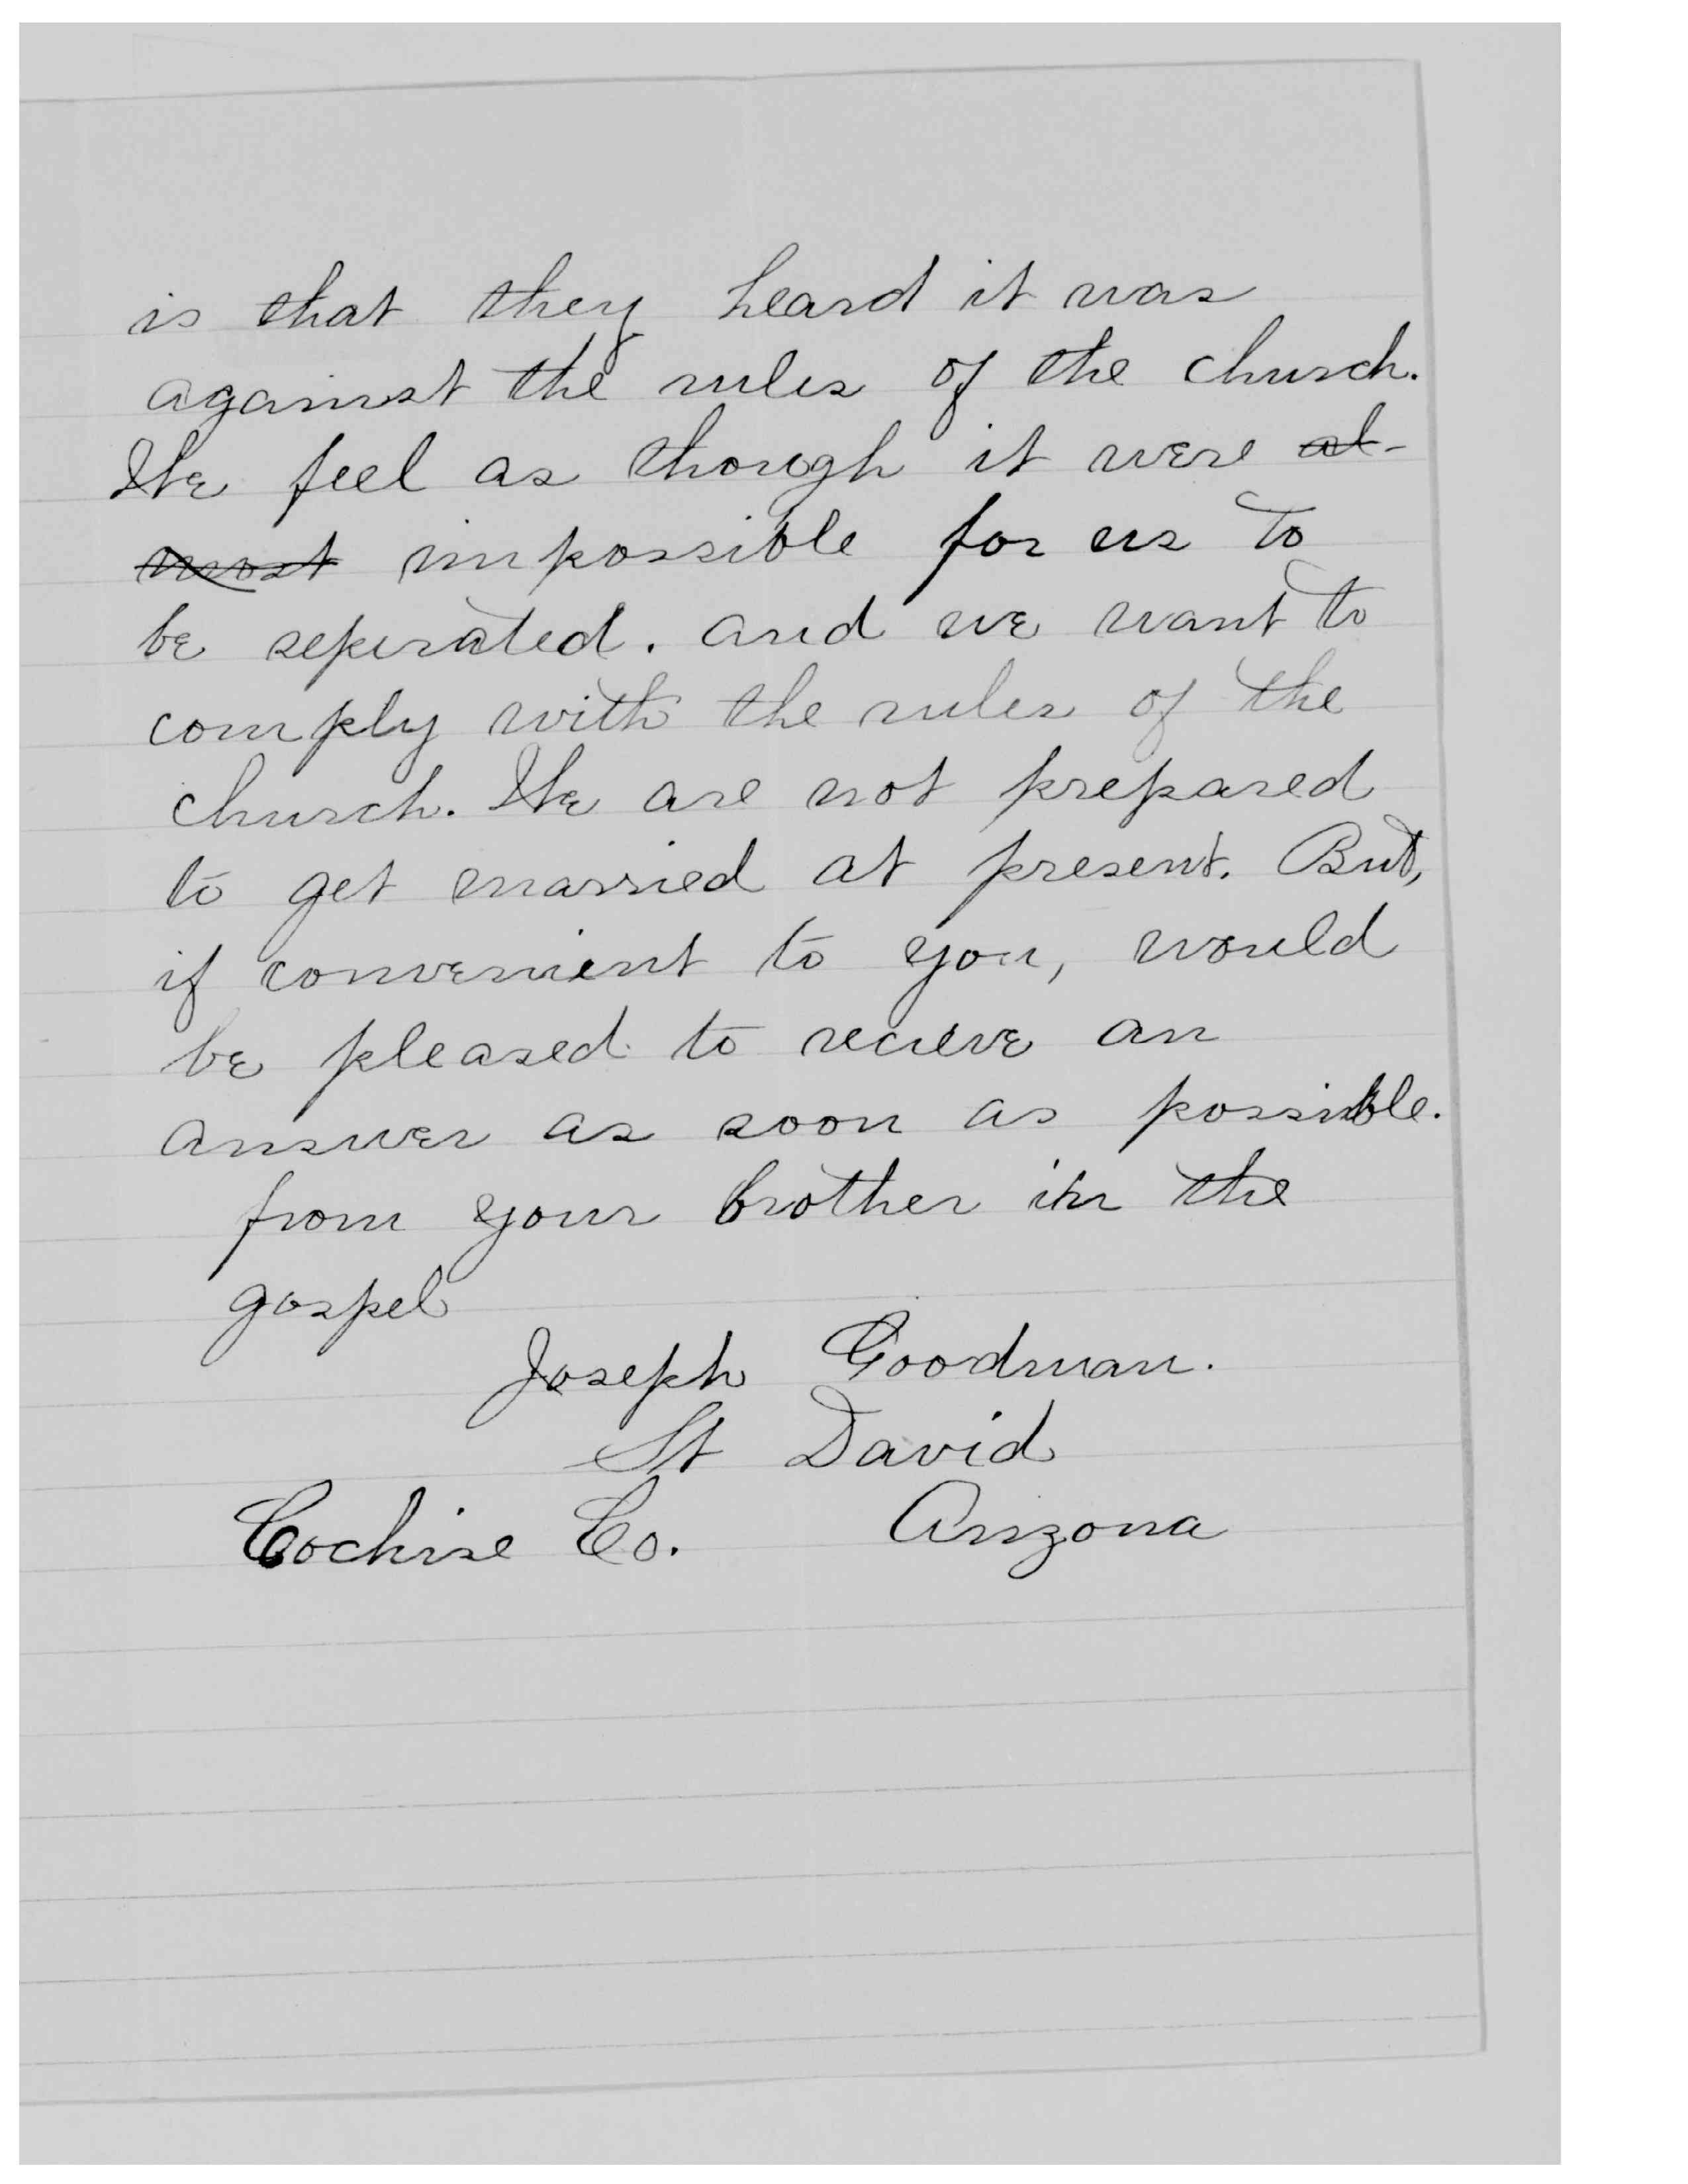 is that they heard it was
against the rules of the church.
We feel as though it were al-
most impossible for us to
be seperated. and we want to
comply with the rules of the
church. We are not prepared
to get married at present. But,
if convenient to you, would
be pleased to recieve an
answer as soon as possible.
from your brother in the
gospel
Joseph Goodman.
St David
Cochise Co. Arizona